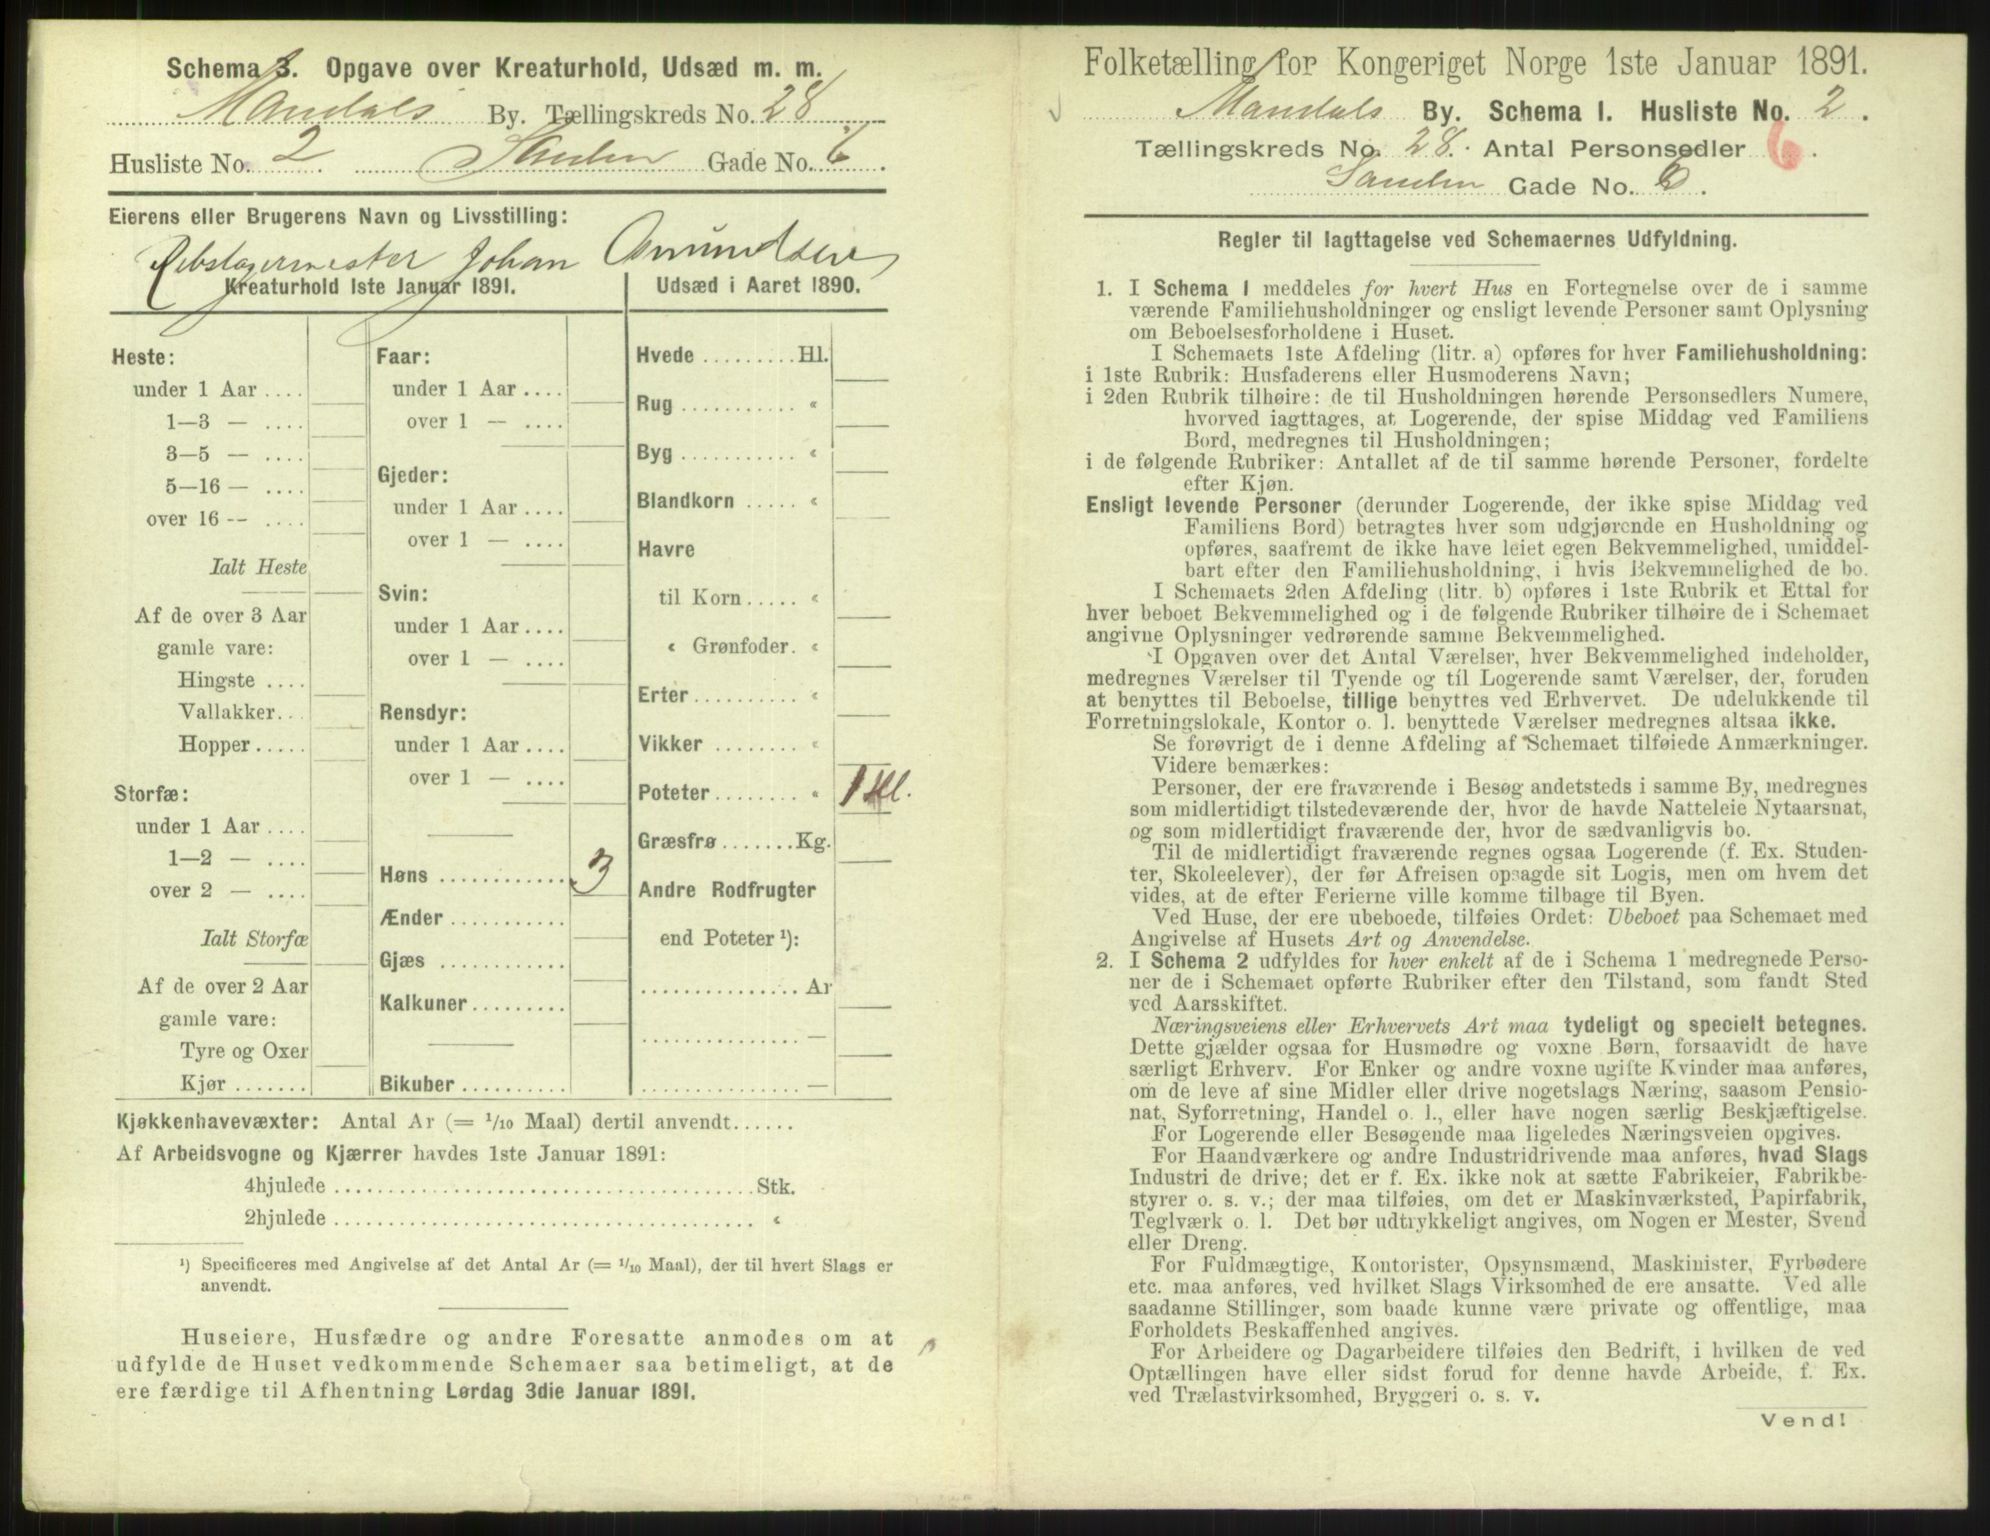 Schema 3. Opgave over Kreaturhold, Udsæd m. m.
Mandals By. Tællingskreds No. 28
Husliste No. 2. Sanden Gade No. 6.
Eierens eller Brugerens Navn og Livsstilling:
Rebslagermester Johan Amundsen
Kreaturhold 1ste Januar 1891.
Heste:
under 1 Aar ....
1—3 — ....
3—5 — ....
5—16 — ....
over 16 -- ....
Ialt Heste
Af de over 3 Aar
gamle vare:
Hingste ....
Vallakker...
Hopper.....
Storfæ:
under 1 Aar ....
1—2 — ....
over 2 — ....
Ialt Storfæ
Af de over 2 Aar
gamle vare:
Tyre og Oxer
Kjør .......
Faar:
under 1 Aar ....
over 1 — ....
Gjeder:
under 1 Aar ....
over 1 — ....
Svin:
under 1 Aar ....
over 1 — ....
Rensdyr:
under 1 Aar ....
over 1 — ....
Høns ............ 3
Ænder ...........
Gjæs ............
Kalkuner.........
Bikuber ..........
Udsæd i Aaret 1890.
Hvede ......... Hl.
Rug ........... «
Byg ........... «
Blandkorn ..... «
Havre
til Korn..... «
« Grønfoder. «
Erter .......... «
Vikker ......... «
Poteter........ « 1 Hl.
Græsfrø .......Kg.
Andre Rodfrugter
end Poteter ¹):
............... Ar
............... —
............... —
Kjøkkenhavevæxter: Antal Ar (= 1/10 Maal) dertil anvendt......
Af Arbeidsvogne og Kjærrer havdes 1ste Januar 1891:
4hjulede ................................ Stk.
2hjulede ................................ «
¹) Specificeres med Angivelse af det Antal Ar (= 1/10 Maal), der til hvert Slags er
anvendt.
Huseiere, Husfædre og andre Foresatte anmodes om at
udfylde de Huset vedkommende Schemaer saa betimeligt, at de
ere færdige til Afhentning Lørdag 3die Januar 1891.
Folketælling for Kongeriget Norge 1ste Januar 1891.
Mandals By. Schema I. Husliste No. 2.
Tællingskreds No. 28. Antal Personsedler 6.
Sanden Gade No. 6.
Regler til Iagttagelse ved Schemaernes Udfyldning.
1. I Schema 1 meddeles for hvert Hus en Fortegnelse over de i samme
værende Familiehusholdninger og ensligt levende Personer samt Oplysning
om Beboelsesforholdene i Huset.
I Schemaets 1ste Afdeling (litr. a) opføres for hver Familiehusholdning:
i 1ste Rubrik: Husfaderens eller Husmoderens Navn;
i 2den Rubrik tilhøire: de til Husholdningen hørende Personsedlers Numere,
hvorved iagttages, at Logerende, der spise Middag ved Familiens
Bord, medregnes til Husholdningen;
i de følgende Rubriker: Antallet af de til samme hørende Personer, fordelte
efter Kjøn.
Ensligt levende Personer (derunder Logerende, der ikke spise Middag ved
Familiens Bord) betragtes hver som udgjørende en Husholdning og
opføres, saafremt de ikke have leiet egen Bekvemmelighed, umiddel-
bart efter den Familiehusholdning, i hvis Bekvemmelighed de bo.
I Schemaets 2den Afdeling (litr. b) opføres i 1ste Rubrik et Ettal for
hver beboet Bekvemmelighed og i de følgende Rubriker tilhøire de i Schemaet
angivne Oplysninger vedrørende samme Bekvemmelighed.
I Opgaven over det Antal Værelser, hver Bekvemmelighed indeholder,
medregnes Værelser til Tyende og til Logerende samt Værelser, der, foruden
at benyttes til Beboelse, tillige benyttes ved Erhvervet. De udelukkende til
Forretningslokale, Kontor o. l. benyttede Værelser medregnes altsaa ikke.
Se forøvrigt de i denne Afdeling af Schemaet tilføiede Anmærkninger.
Videre bemærkes:
Personer, der ere fraværende i Besøg andetsteds i samme By, medregnes
som midlertidigt tilstedeværende der, hvor de havde Natteleie Nytaarsnat,
og som midlertidigt fraværende der, hvor de sædvanligvis bo.
Til de midlertidigt fraværende regnes ogsaa Logerende (f. Ex. Studen-
ter, Skoleelever), der før Afreisen opsagde sit Logis, men om hvem det
vides, at de efter Ferierne ville komme tilbage til Byen.
Ved Huse, der ere ubeboede, tilføies Ordet: Ubeboet paa Schemaet med
Angivelse af Husets Art og Anvendelse.
2. I Schema 2 udfyldes for hver enkelt af de i Schema 1 medregnede Perso-
ner de i Schemaet opførte Rubriker efter den Tilstand, som fandt Sted
ved Aarsskiftet.
Næringsveiens eller Erhvervets Art maa tydeligt og specielt betegnes.
Dette gjælder ogsaa for Husmødre og voxne Børn, forsaavidt de have
særligt Erhverv. For Enker og andre voxne ugifte Kvinder maa anføres,
om de leve af sine Midler eller drive nogetslags Næring, saasom Pensio-
nat, Syforretning, Handel o. l., eller have nogen særlig Beskjæftigelse.
For Logerende eller Besøgende maa ligeledes Næringsveien opgives.
For Haandværkere og andre Industridrivende maa anføres, hvad Slags
Industri de drive; det er f. Ex. ikke nok at sætte Fabrikeier, Fabrikbe-
styrer o. s. v.; der maa tilføies, om det er Maskinværksted, Papirfabrik,
Teglværk o. l. Det bør udtrykkeligt angives, om Nogen er Mester, Svend
eller Dreng.
For Fuldmægtige, Kontorister, Opsynsmænd, Maskinister, Fyrbødere
etc. maa anføres, ved hvilket Slags Virksomhed de ere ansatte. Ved alle
saadanne Stillinger, som baade kunne være private og offentlige, maa
Forholdets Beskaffenhed angives.
For Arbeidere og Dagarbeidere tilføies den Bedrift, i hvilken de ved
Optællingen have eller sidst forud for denne havde Arbeide, f. Ex.
ved Trælastvirksomhed, Bryggeri o. s. v.
Vend!